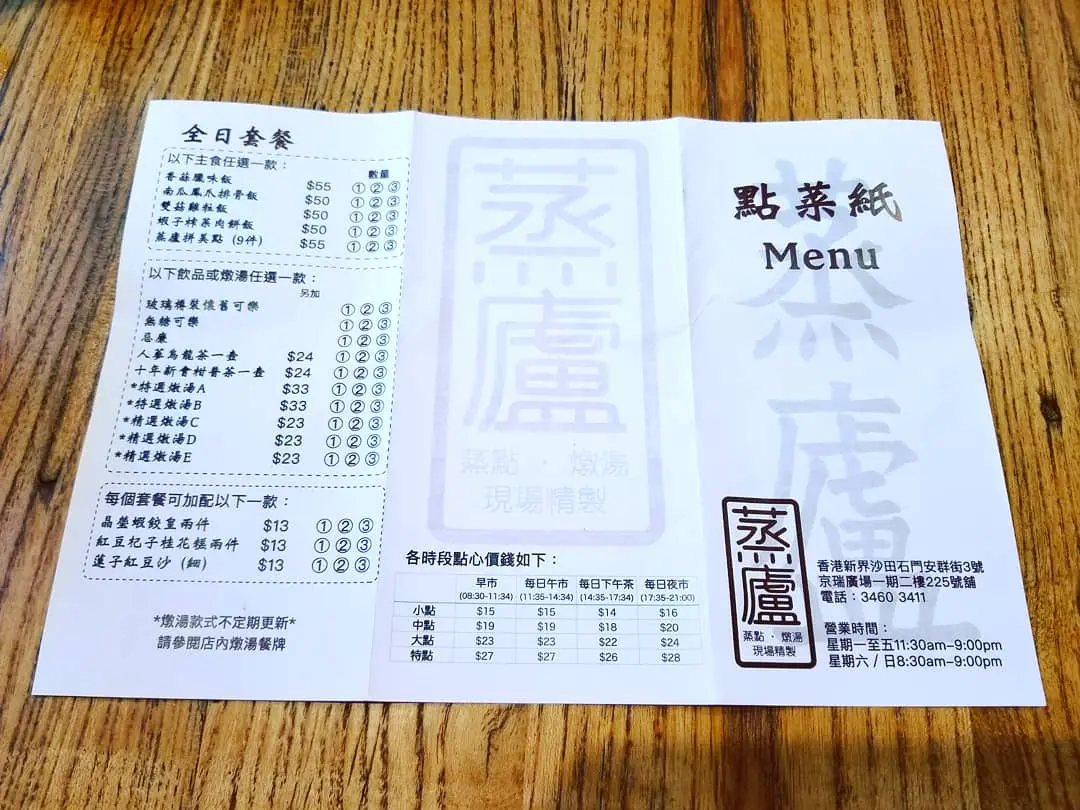 全日套餐
以下主食任選一款：
數量
香菇臘味飯 $55 ① ② ③
南瓜鳳爪排骨飯 $50 ① ② ③
雙菇雞粒飯 $50 ① ② ③
蝦子榨菜肉餅飯 $50 ① ② ③
蒸廬拼美點 (9件) $55 ① ② ③
以下飲品或燉湯任選一款：
另加
玻璃樽裝懷舊可樂 ① ② ③
無糖可樂 ① ② ③
忌廉 ① ② ③
人蔘烏龍茶一壺 $24 ① ② ③
十年新會柑普茶一壺 $24 ① ② ③
*特選燉湯A $33 ① ② ③
*特選燉湯B $33 ① ② ③
*精選燉湯C $23 ① ② ③
*精選燉湯D $23 ① ② ③
*精選燉湯E $23 ① ② ③
每個套餐可加配以下一款：
晶瑩蝦餃皇兩件 $13 ① ② ③
紅豆杞子桂花糕兩件 $13 ① ② ③
蓮子紅豆沙 (細) $13 ① ② ③
*燉湯款式不定期更新*
請參閱店內燉湯餐牌
蒸廬
蒸點 · 燉湯
現場精製
各時段點心價錢如下：
早市 每日午市 每日下午茶 每日夜市
(08:30-11:34) (11:35-14:34) (14:35-17:34) (17:35-21:00)
小點 $15 $15 $14 $16
中點 $19 $19 $18 $20
大點 $23 $23 $22 $24
特點 $27 $27 $26 $28
蒸廬
點菜紙
Menu
蒸廬
蒸點 · 燉湯
現場精製
香港新界沙田石門安群街3號
京瑞廣場一期二樓225號舖
電話：3460 3411
營業時間：
星期一至五11:30am-9:00pm
星期六 / 日8:30am-9:00pm